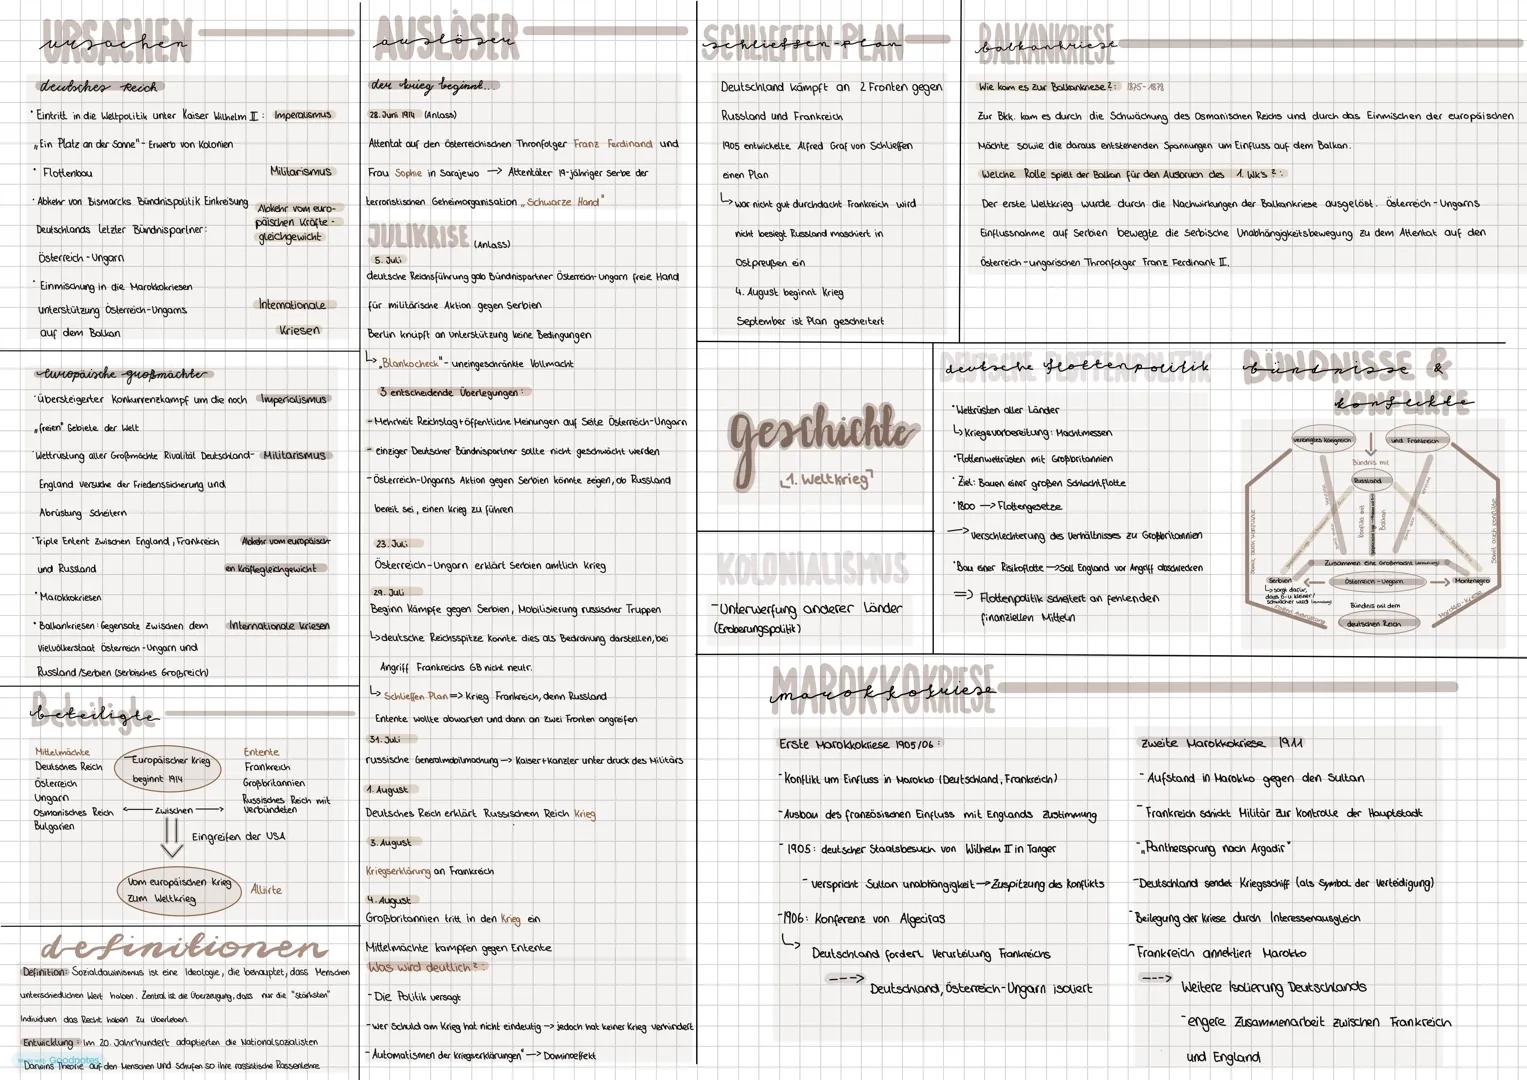 URSACHEN
ursachen
deutsches Reich
· Eintritt in die Weltpolitik unter Kaiser Wilhelm II : Imperalismus
„Ein Platz an der Sonne"- Erwerb von Kolonien
· Flottenbau Militarismus
· Abkehr von Bismarcks Bündnispolitik Einkreisung
Deutschlands letzter Bündnispartner:
Österreich - Ungarn
Abkehr vom euro-
päischen Kräfte -
gleichgewicht
· Einmischung in die Marokkokriesen
unterstützung Österreich-Ungarns
auf dem Balkan
Internationale
Kriesen
europäische großmächte
· Übersteigerter Konkurrenzkampf um die noch Imperialismus
„freien" Gebiete der Welt
· Wettrüstung aller Großmächte Rivalität Deutschland- Militarismus
England versuche der Friedenssicherung und
Abrüstung Scheitern
· Triple Entent zwischen England, Frankreich Abkehr vom europäisch-
und Russland en Kräftegleichgewicht
· Marokkokriesen
· Balkankriesen: Gegensatz zwischen dem Internationale kriesen
Vielvölkerstaat Österreich-Ungarn und
Russland /Serbien (serbisches Großreich)
Beteiligte
beteiligte
Mittelmächte
Deutsches Reich
Österreich
Ungarn
Osmanisches Reich
Bulgarien
Europäischer Krieg
beginnt 1914
← Zwischen →
Entente
Frankreich
Großbritannien
Russisches Reich mit
Verbündeten
Eingreifen der USA
Vom europäischen Krieg
zum Weltkrieg
Alliirte
definitionen
Definition: Sozialdauinismus ist eine Ideologie, die behauptet, dass Menschen
unterschiedlichen Wert haben. Zentral ist die Überzeugung, dass nur die "stärksten"
Individuen das Recht haben zu überleben.
Entwicklung: Im 20. Jahrhundert adaptierten die Nationalsozialisten
Darwins Theorie auf den Menschen und schufen so ihre rassistische Rassenlehre
Made with Goodnotes
AUSLÖSER
auslöser
der krieg beginnt...
28. Juni 1914 (Anlass)
Attentat auf den österreichischen Thronfolger Franz Ferdinand und
Frau Sophie in Sarajewo → Attentäter 19-jähriger serbe der
terroristischen Geheimorganisation „Schwarze Hand"
JULIKRISE (Anlass)
5. Juli
deutsche Reichsführung gab Bündnispartner Österreich-Ungarn freie Hand
für militärische Aktion gegen Serbien
Berlin knüpft an unterstützung keine Bedingungen
↳ „Blankocheck"- uneingeschränkte Vollmacht
3 entscheidende Überlegungen:
- Mehrheit Reichstag + öffentliche Meinungen auf Seite Österreich-Ungarn
- einziger Deutscher Bündnispartner sollte nicht geschwächt werden
- Österreich-Ungarns Aktion gegen Serbien könnte zeigen, ob Russland
bereit sei, einen Krieg zu führen
23. Juli
Österreich-Ungarn erklärt Serbien amtlich Krieg
29. Juli
Beginn Kämpfe gegen Serbien, Mobilisierung russischer Truppen
↳ deutsche Reichsspitze konnte dies als Bedrohung darstellen, bei
Angriff Frankreichs GB nicht neutr.
↳ Schlieffen Plan => Krieg Frankreich, denn Russland
Entente wollte abwarten und dann an zwei Fronten angreifen
31. Juli
russische Generalmobilmachung → Kaiser+Kanzler unter druck des Militärs
1. August
Deutsches Reich erklärt Russischem Reich Krieg
3. August
Kriegserklärung an Frankreich
4. August
Großbritannien tritt in den Krieg ein
Mittelmächte kämpfen gegen Entente
Was wird deutlich?:
- Die Politik versagt
- wer Schuld am Krieg hat nicht eindeutig → jedoch hat keiner Krieg verhindert
- Automatismen der Kriegserklärungen" → Dominoeffekt
SCHLIEFFEN-PLAN
schlieffen-plan
Deutschland kämpft an 2 Fronten gegen
Russland und Frankreich
1905 entwickelte Alfred Graf von Schlieffen
einen Plan
↳ war nicht gut durchdacht Frankreich wird
nicht besiegt Russland maschiert in
Ostpreußen ein
4. August beginnt Krieg
September ist Plan gescheitert
BALKANKRIESE
balkankriese
Wie kam es zur Balkankriese?: 1875-1878
Zur Bkk. kam es durch die Schwächung des Osmanischen Reichs und durch das Einmischen der europäischen
Mächte sowie die daraus entstehenden Spannungen um Einfluss auf dem Balkan.
Welche Rolle spielt der Balkan für den Ausbruch des 1. Wk's?:
Der erste Weltkrieg wurde durch die Nachwirkungen der Balkankriese ausgelöst. Österreich-Ungarns
Einflussnahme auf Serbien bewegte die serbische Unabhängigkeitsbewegung zu dem Attentat auf den
Österreich-ungarischen Thronfolger Franz Ferdinant II.
geschichte
1. Weltkrieg
KOLONIALISMUS
- Unterwerfung anderer Länder
(Eroberungspolitik)
DEUTSCHE FLOTTENPOLITIK
deutsche flottenpolitik
· Wettrüsten aller Länder
↳ Kriegsvorbereitung: Machtmessen
· Flottenwettrüsten mit Großbritannien
· Ziel: Bauen einer großen Schlachtflotte
· 1800 → Flottengesetze
→ Verschlechterung des Verhältnisses zu Großbritannien
· Bau einer Risikoflotte → Soll England vor Angriff abschrecken
=> Flottenpolitik scheitert an fehlenden
finanziellen Mitteln
BÜNDNISSE &
bündnisse &
KONFLIKTE
konflikte
vereinigtes Königreich
und Frankreich
Bündnis mit
Russland
Konflikt mit
Balkan
Zusammen eine Großmacht
Serbien ← Österreich-Ungarn → Montenegro
↳ sorgt dafür,
dass Ö-U kleiner/
schwächer wird
Bündnis mit dem
deutschen Reich
Somit auch Konflikte
MAROKKOKRIESE
marokkokriese
Erste Marokkokriese 1905/06:
- Konflikt um Einfluss in Marokko (Deutschland, Frankreich)
- Ausbau des französischen Einfluss mit Englands Zustimmung
- 1905: deutscher Staatsbesuch von Wilhelm II in Tanger
- verspricht Sultan unabhängigkeit → Zuspitzung des Konflikts
- 1906: Konferenz von Algeciras
↳ Deutschland fordert Verurteilung Frankreichs
---> Deutschland, Österreich-Ungarn isoliert
zweite Marokkokriese 1911
- Aufstand in Marokko gegen den Sultan
- Frankreich schickt Militär zur Kontrolle der Hauptstadt
- „Panthersprung nach Argadir"
- Deutschland sendet Kriegsschiff (als Symbol der Verteidigung)
- Beilegung der Kriese durch Interessenausgleich
- Frankreich annektiert Marokko
---> Weitere Isolierung Deutschlands
- engere Zusammenarbeit zwischen Frankreich
und England